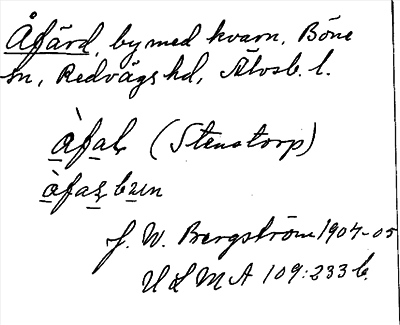 Åfärd, by med kvarn, Böne
sn, Redvägs hd, Älvsb. l.
àfaḷ (Stenstorp)
àfaʂ bʉen
J. W. Bergström 1904-05
ULMA 109:233 b.